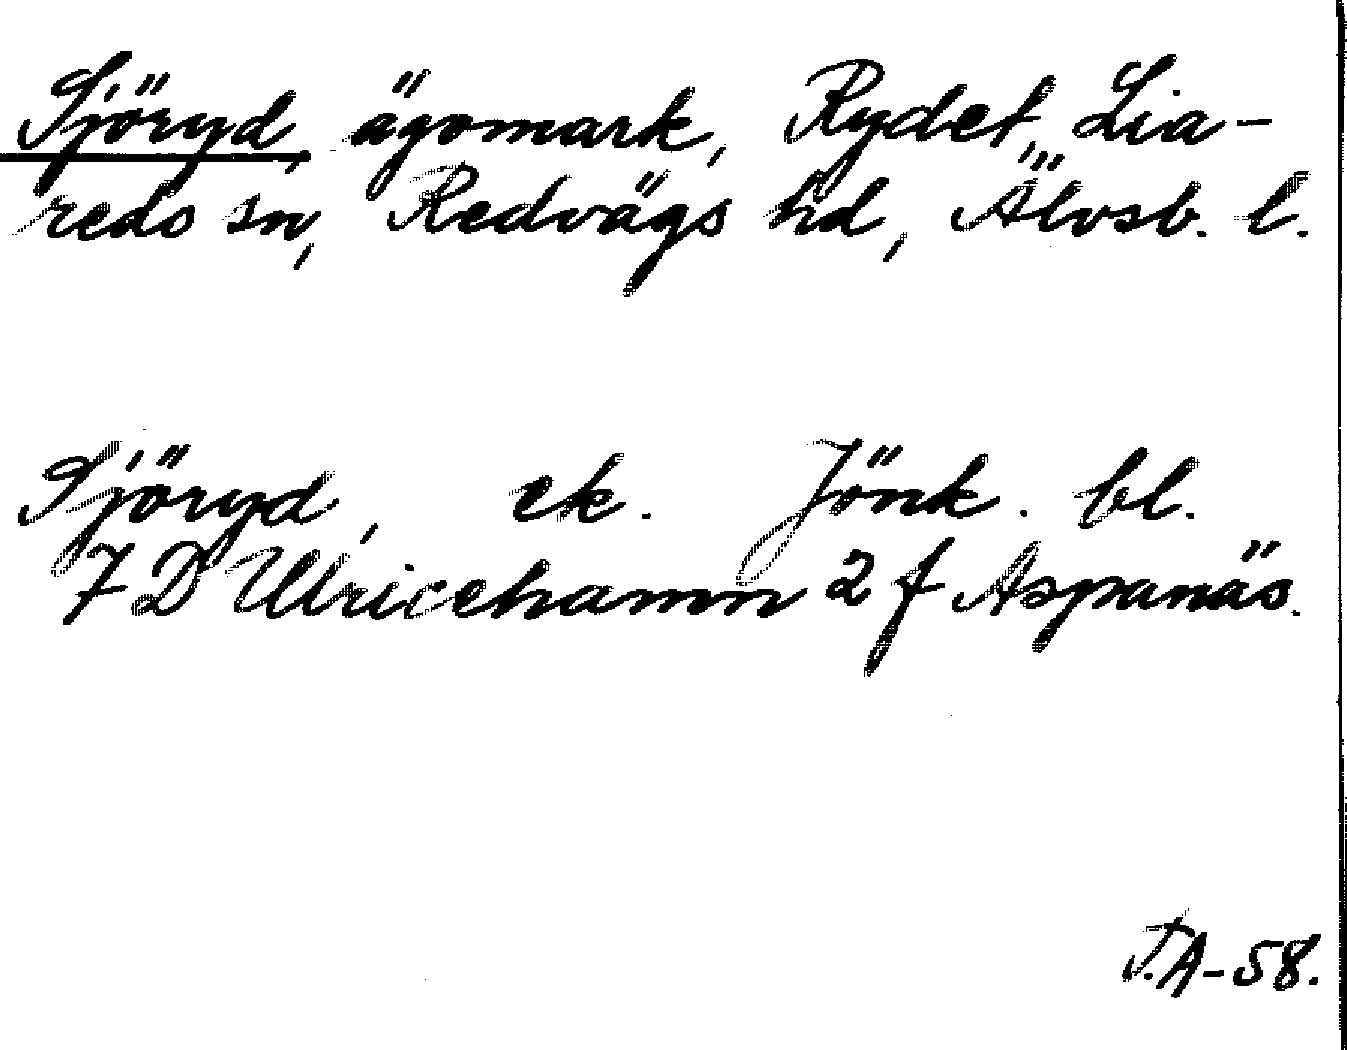 Sjöryd, ägomark, Rydet, Lia-
reds sn, Redvägs hd, Älvsb. l.
Sjöryd, ek. Jönk. bl.
7 D Ulricehamn 2 f Aspanäs.
T.A-58.